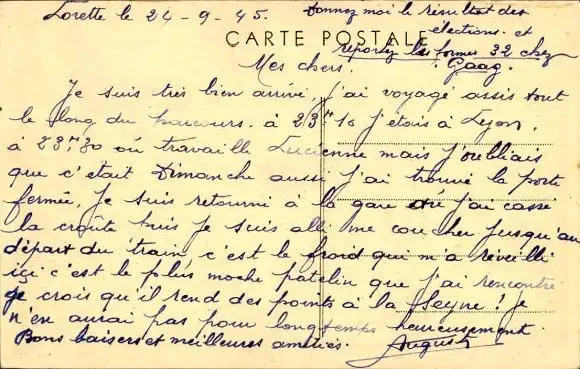 Lorette le 24-9-45. Donnez moi le résultat des
élections. et
CARTE POSTALE
reportez les formes 32 chez
Mes chers. Gaag.
Je suis très bien arrivé, j'ai voyagé assis tout
le long du parcours. à 23H10 j'étois à Lyon,
à 23H30 ou travaille Lucienne mais j'oubliais
que c'était Dimanche aussi j'ai trouvé la porte
fermée. Je suis retourné à la gare où j'ai cassé
la croûte puis je suis allé me coucher jusqu'au
départ du train c'est le froid qui m'a réveillé
içi c'est le plus moche patelin que j'ai rencontré
je crois qu'il rend des points à la Meyne! Je
n'en aurai pas pour longtemps heureusement.
Bons baisers et meilleures amitiés. August